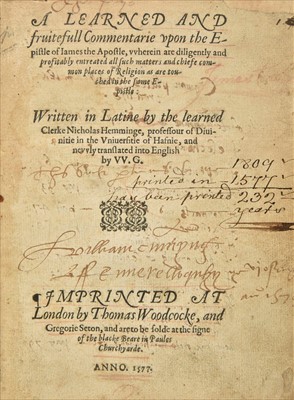 A LEARNED AND
fruitefull Commentarie vpon the E-
pistle of Iames the Apostle, vvherein are diligently and
profitably entreated all such matters and chiefe com-
mon places of Religion as are tou-
ched in the same E-
pistle:
Written in Latine by the learned
Clerke Nicholas Hemminge, professour of Diui-
nitie in the Vniuersitie of Hafnie, and
nevvly translated into English
by VV. G.
1809
printed in 1577
been printed 232
years
William
¶IMPRINTED AT
London by Thomas Woodcocke, and
Gregorie Seton, and are to be solde at the signe
of the blacke Beare in Paules
Churchyarde.
ANNO. 1577.